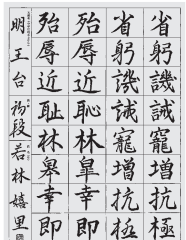 省躬譏誡寵增抗極
省躬譏誡寵増抗極
殆辱近恥林皐幸即
殆辱近耻林皋幸即
明王台 初段 若林嬉里